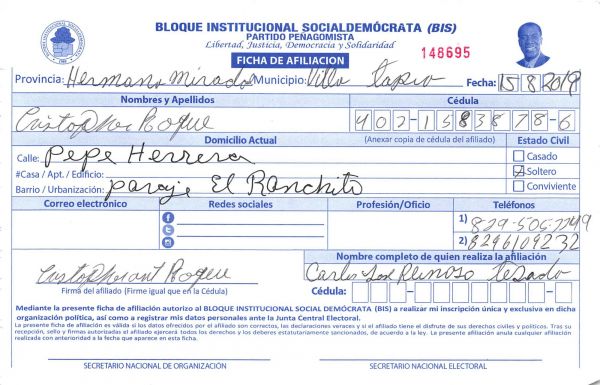 BLOQUE INSTITUCIONAL SOCIALDEMÓCRATA (BIS)
PARTIDO PEÑAGOMISTA
Libertad, Justicia, Democracia y Solidaridad
148695
FICHA DE AFILIACION
Provincia: Hermana Mirabal Municipio: Villa Tapia Fecha: 15/8/2019
Nombres y Apellidos Cédula
Cristopher Roque 402-1583878-6
Domicilio Actual (Anexar copia de cédula del afiliado) Estado Civil
Calle: Pepe Herrera Casado
#Casa / Apt. / Edificio: Soltero
Barrio / Urbanización: paraje El Ranchito Conviviente
Correo electrónico Redes sociales Profesión/Oficio Teléfonos
1) 829-505-7749
2) 8296109232
Nombre completo de quien realiza la afiliación
Roque Carlos José Reinoso
Firma del afiliado (Firme igual que en la Cédula) Cédula:
Mediante la presente ficha de afiliación autorizo al BLOQUE INSTITUCIONAL SOCIAL DEMÓCRATA (BIS) a realizar mi inscripción única y exclusiva en dicha
organización política, así como a registrar mis datos personales ante la Junta Central Electoral.
La presente ficha de afiliación es válida si los datos ofrecidos por el afiliado son correctos, las declaraciones veraces y si el afiliado tiene el disfrute de sus derechos civiles y políticos. Tras su
recepción, sello y firmas autorizadas el afiliado ejercerá todos los derechos y los deberes estatutariamente sancionados, de acuerdo a la ley. La presente afiliación anula cualquier afiliación
realizada con anterioridad a la fecha que aparece en esta ficha.
SECRETARIO NACIONAL DE ORGANIZACIÓN SECRETARIO NACIONAL ELECTORAL